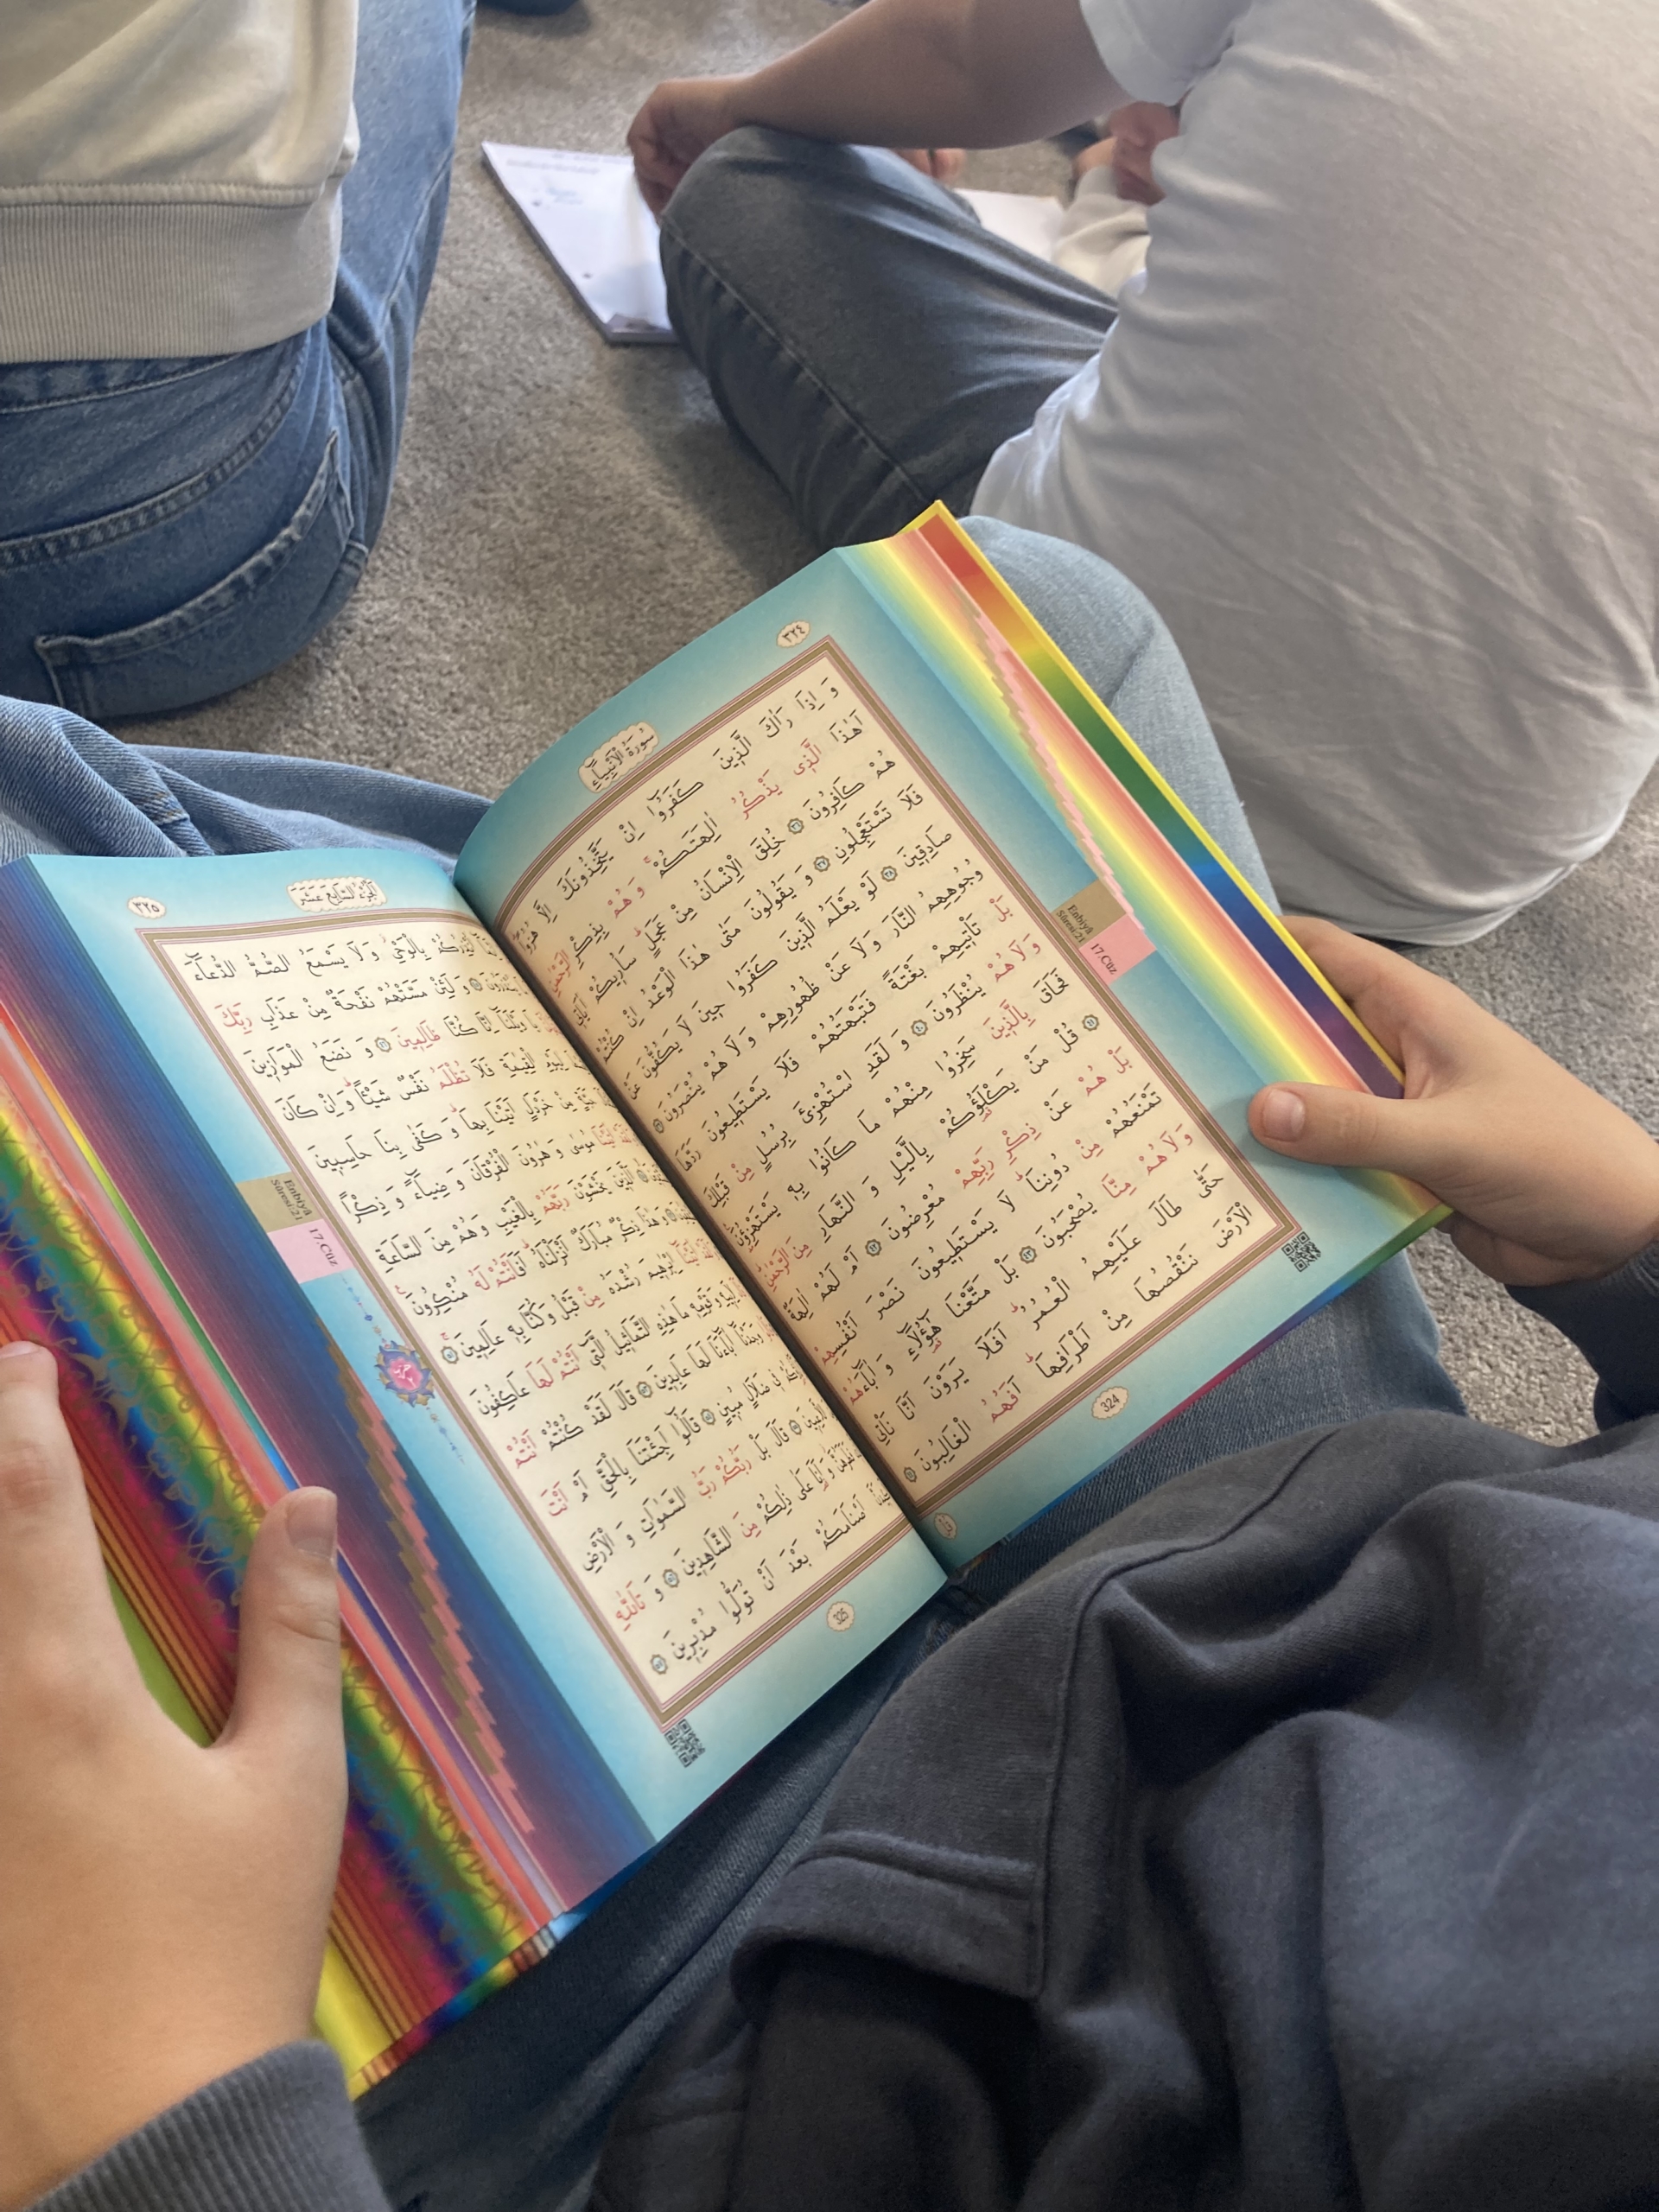 ٣٢٤
سُورَةُ الْاَنْبِيَاءِ
وَ اِذَا رَاٰكَ الَّذٖينَ كَفَرُٓوا اِنْ يَتَّخِذُونَكَ اِلَّا هُزُوًاؕ
اَهٰذَا الَّذٖي يَذْكُرُ اٰلِهَتَكُمْۚ وَ هُمْ بِذِكْرِ الرَّحْمٰنِ
هُمْ كَافِرُونَ ٣٦ خُلِقَ الْاِنْسَانُ مِنْ عَجَلٍؕ سَاُرٖيكُمْ اٰيَاتٖي
فَلَا تَسْتَعْجِلُونِ ٣٧ وَ يَقُولُونَ مَتٰى هٰذَا الْوَعْدُ اِنْ كُنْتُمْ
صَادِقٖينَ ٣٨ لَوْ يَعْلَمُ الَّذٖينَ كَفَرُوا حٖينَ لَا يَكُفُّونَ عَنْ
وُجُوهِهِمُ النَّارَ وَ لَا عَنْ ظُهُورِهِمْ وَ لَا هُمْ يُنْصَرُونَ ٣٩
بَلْ تَاْتٖيهِمْ بَغْتَةً فَتَبْهَتُهُمْ فَلَا يَسْتَطٖيعُونَ رَدَّهَا
وَ لَا هُمْ يُنْظَرُونَ ٤٠ وَ لَقَدِ اسْتُهْزِئَ بِرُسُلٍ مِنْ قَبْلِكَ
فَحَاقَ بِالَّذٖينَ سَخِرُوا مِنْهُمْ مَا كَانُوا بِهٖ يَسْتَهْزِؤُنَ
٤١ قُلْ مَنْ يَكْلَؤُكُمْ بِالَّيْلِ وَ النَّهَارِ مِنَ الرَّحْمٰنِؕ
بَلْ هُمْ عَنْ ذِكْرِ رَبِّهِمْ مُعْرِضُونَ ٤٢ اَمْ لَهُمْ اٰلِهَةٌ
تَمْنَعُهُمْ مِنْ دُونِنَاؕ لَا يَسْتَطٖيعُونَ نَصْرَ اَنْفُسِهِمْ
وَ لَا هُمْ مِنَّا يُصْحَبُونَ ٤٣ بَلْ مَتَّعْنَا هٰٓؤُلَٓاءِ وَ اٰبَٓاءَهُمْ
حَتّٰى طَالَ عَلَيْهِمُ الْعُمُرُؕ اَفَلَا يَرَوْنَ اَنَّا نَاْتِي
الْاَرْضَ نَنْقُصُهَا مِنْ اَطْرَافِهَاؕ اَفَهُمُ الْغَالِبُونَ ٤٤
324
Enbiyâ
Sûresi 21
17.Cüz
اَلْجُزْءُ السَّابِعُ عَشَرَ
٣٢٥
اُنْذِرُكُمْ بِالْوَحْيِؗ وَ لَا يَسْمَعُ الصُّمُّ الدُّعَٓاءَ
وَ لَئِنْ مَسَّتْهُمْ نَفْحَةٌ مِنْ عَذَابِ رَبِّكَ
يَا وَيْلَنَٓا اِنَّا كُنَّا ظَالِمٖينَ ٤٦ وَ نَضَعُ الْمَوَازٖينَ
لِيَوْمِ الْقِيٰمَةِ فَلَا تُظْلَمُ نَفْسٌ شَيْـًٔاؕ وَ اِنْ كَانَ
حَبَّةٍ مِنْ خَرْدَلٍ اَتَيْنَا بِهَاؕ وَ كَفٰى بِنَا حَاسِبٖينَ
مُوسٰى وَ هٰرُونَ الْفُرْقَانَ وَ ضِيَٓاءً وَ ذِكْرًا
اَلَّذٖينَ يَخْشَوْنَ رَبَّهُمْ بِالْغَيْبِ وَ هُمْ مِنَ السَّاعَةِ
وَ هٰذَا ذِكْرٌ مُبَارَكٌ اَنْزَلْنَاهُؕ اَفَاَنْتُمْ لَهُ مُنْكِرُونَ
اِبْرٰهٖيمَ رُشْدَهُ مِنْ قَبْلُ وَ كُنَّا بِهٖ عَالِمٖينَ ٥١
وَ قَوْمِهٖ مَا هٰذِهِ التَّمَاثٖيلُ الَّتٖٓي اَنْتُمْ لَهَا عَاكِفُونَ
وَجَدْنَٓا اٰبَٓاءَنَا لَهَا عَابِدٖينَ ٥٣ قَالَ لَقَدْ كُنْتُمْ اَنْتُمْ
فٖي ضَلَالٍ مُبٖينٍ ٥٤ قَالُٓوا اَجِئْتَنَا بِالْحَقِّ اَمْ اَنْتَ
قَالَ بَلْ رَبُّكُمْ رَبُّ السَّمٰوَاتِ وَ الْاَرْضِ
وَ اَنَا عَلٰى ذٰلِكُمْ مِنَ الشَّاهِدٖينَ ٥٦ وَ تَاللّٰهِ
اَصْنَامَكُمْ بَعْدَ اَنْ تُوَلُّوا مُدْبِرٖينَ ٥٧
325
Enbiyâ
Sûresi 21
17.Cüz